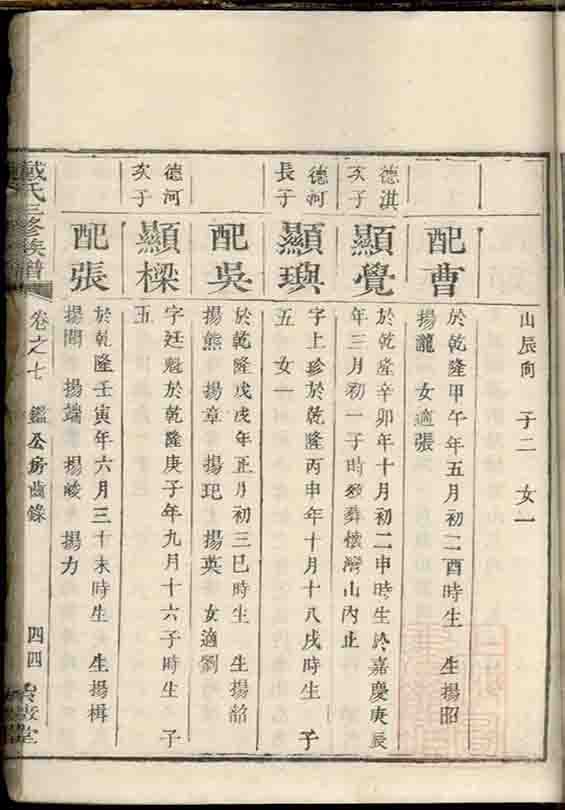 山辰向　子二　女一
配曹
於乾隆甲午年五月初二酉時生　生揚昭
揚瀧　女適張
德淇
次子
顯覺
於乾隆辛卯年十月初二申時生於嘉慶庚辰
年三月初一子時歿葬懷灣山內止
德河
長子
顯璵
字上珍於乾隆丙申年十月十八戌時生　子
五　女一
配吳
於乾隆戊戌年正月初三巳時生　生揚韶
揚熊　揚章　揚玘　揚英　女適劉
德河
次子
顯樑
字廷魁於乾隆庚子年九月十六子時生　子
五
配張
於乾隆壬寅年六月三十未時生　生揚楫
揚開　揚端　揚峻　揚力
戴氏三修族譜
卷之七　鑑公房齒錄
四四